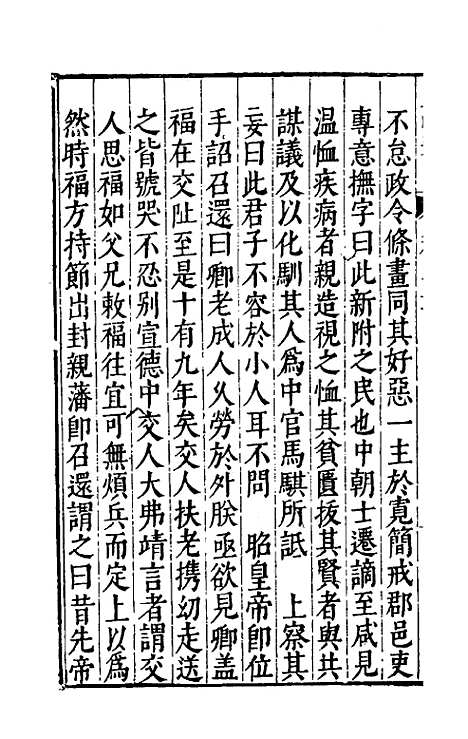 不怠政令條畫同其好惡一主於寬簡戒郡邑吏
專意撫字曰此新附之民也中朝士遷謫至咸見
温恤疾病者親造視之恤其貧匱拔其賢者與共
謀議及以化馴其人爲中官馬騏所詆　上察其
妄曰此君子不容於小人耳不問　昭皇帝卽位
手詔召還曰卿老成人乆勞於外朕亟欲見卿蓋
福在交阯至是十有九年矣交人扶老携幼走送
之皆號哭不忍别宣德中交人大弗靖言者謂交
人思福如父兄敕福往宜可無煩兵而定上以爲
然時福方持節出封親藩卽召還謂之曰昔先帝